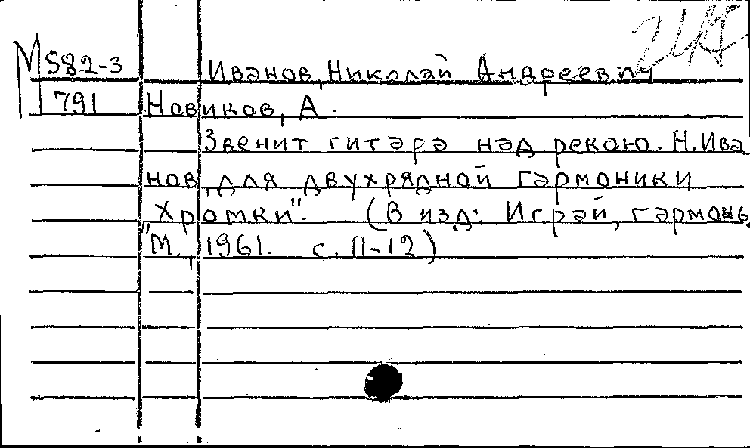 М582-3 Иванов, Николай Андреевич
791 Новиков, А.
Звенит гитара над рекою. Н.Ива
нов, для двухрядной гармоники
"Хромки". (В изд: Играй, гармонь.
М., 1961. с. 11-12)